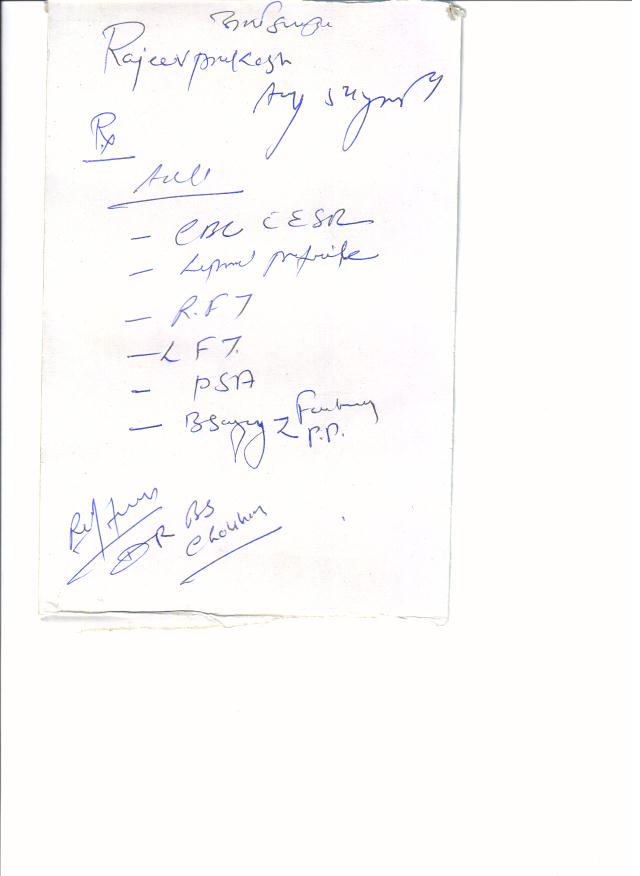 Rajeev prakash
54 yrs M
Rx
Adv
- CBC c̄ ESR
- Lipid profile
- R.F.T
- LFT.
- PSA
- BSugar Fasting
P.P.
Ref from
DR BS
Chouhan